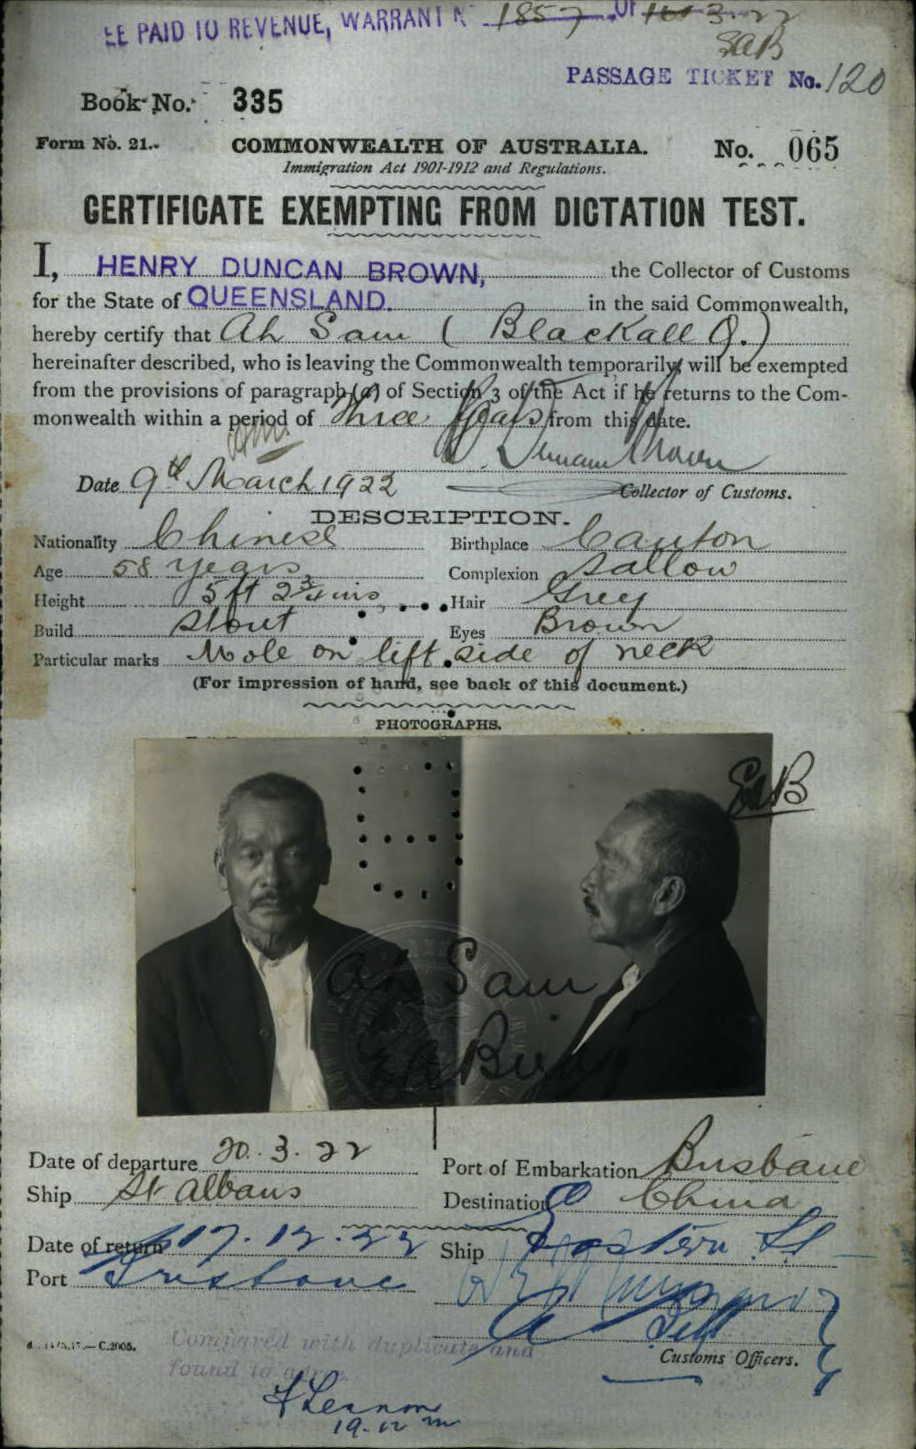 EE PAID TO REVENUE, WARRANT N 1857 OF 16.3.22
EaB
PASSAGE TICKET No. 120
Book No. 335
Form No. 21.
COMMONWEALTH OF AUSTRALIA.
No. 065
Immigration Act 1901-1912 and Regulations.
CERTIFICATE EXEMPTING FROM DICTATION TEST.
I, HENRY DUNCAN BROWN, the Collector of Customs
for the State of QUEENSLAND. in the said Commonwealth,
hereby certify that Ah Sam (Blackall Q.)
hereinafter described, who is leaving the Commonwealth temporarily, will be exempted
from the provisions of paragraph (a) of Section 3 of the Act if he returns to the Com-
monwealth within a period of Three Years from this date.
H. Duncan Brown
Date 9th March 1922
Collector of Customs.
DESCRIPTION.
Nationality Chinese Birthplace Canton
Age 58 years Complexion Sallow
Height 5ft 2¾ins Hair Grey
Build Stout Eyes Brown
Particular marks Mole on left side of neck
(For impression of hand, see back of this document.)
PHOTOGRAPHS.
EaB
Ah Sam
Date of departure 20.3.22 Port of Embarkation Brisbane
Ship St Albans Destination China
Date of return 17.12.22 Ship Eastern
Port Brisbane
Customs Officers.
C.2005.
Compared with duplicate and
found to agree.
19.12.22